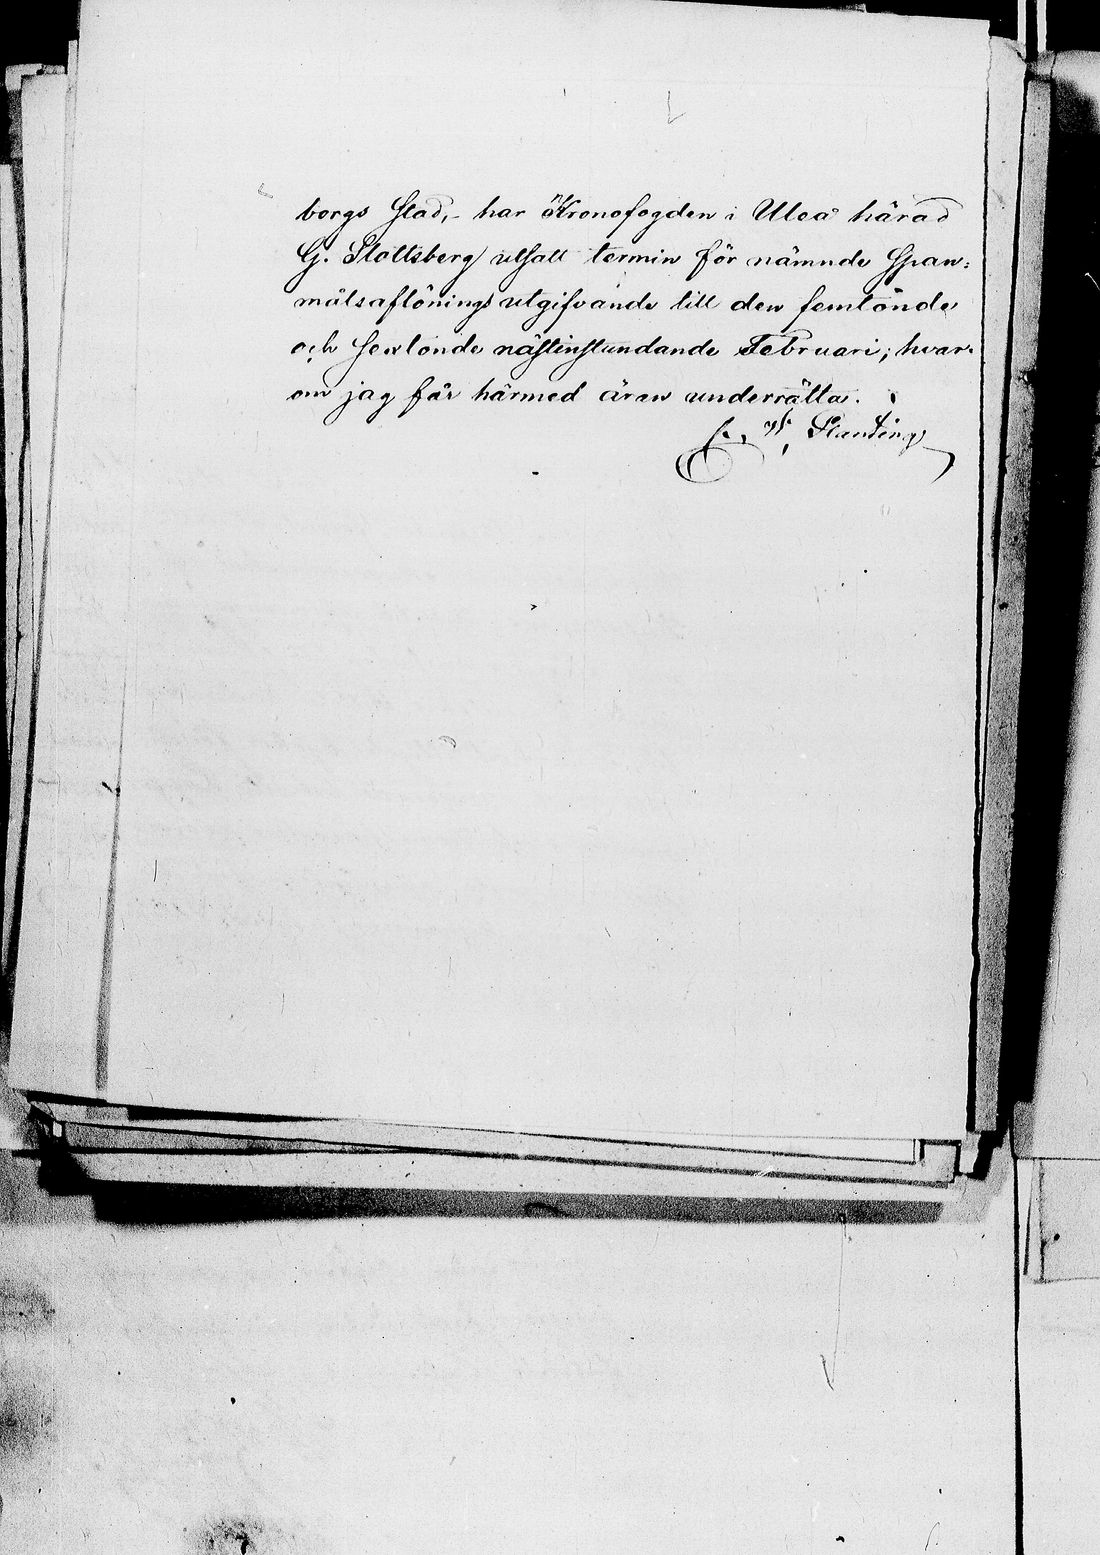 borgs stad, har Kronofogden i Uleå härad
G. Slottsberg utsatt termin för nämnde Span-
målsaflönings utgifvande till den femtonde
och sextonde nästinstundande Februari; hvar-
om jag får härmed äran underrätta.